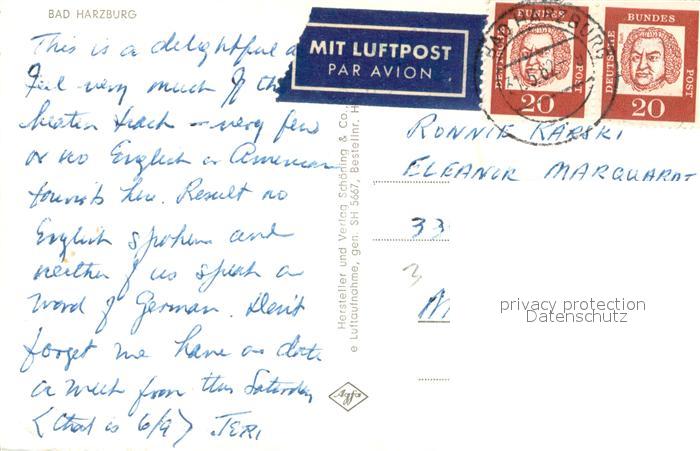 BAD HARZBURG
This is a delightful a
Feel very much off the
beaten track - very few
or no English or American
tourists here. Result no
English spoken and
neither of us speak a
word of German. Don't
forget we have a date
a week from this Saturday
(that is 6/9) TERI
Hersteller und Verlag Schöning & Co.,
e Luftaufnahme, gen. SH 5667, Bestellnr. H
Agfa
MIT LUFTPOST
PAR AVION
DEUTSCHE BUNDES POST
20
DEUTSCHE BUNDES POST
20
RONNIE KARSKI
ELEANOR MARQUARDT
33
3
M
privacy protection
Datenschutz